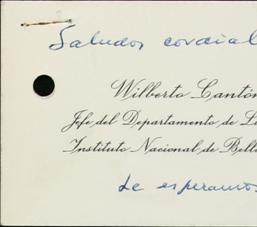 Saludos cordial
Wilberto Cantón
Jefe del Departamento de Li
Instituto Nacional de Bell
Le esperamos